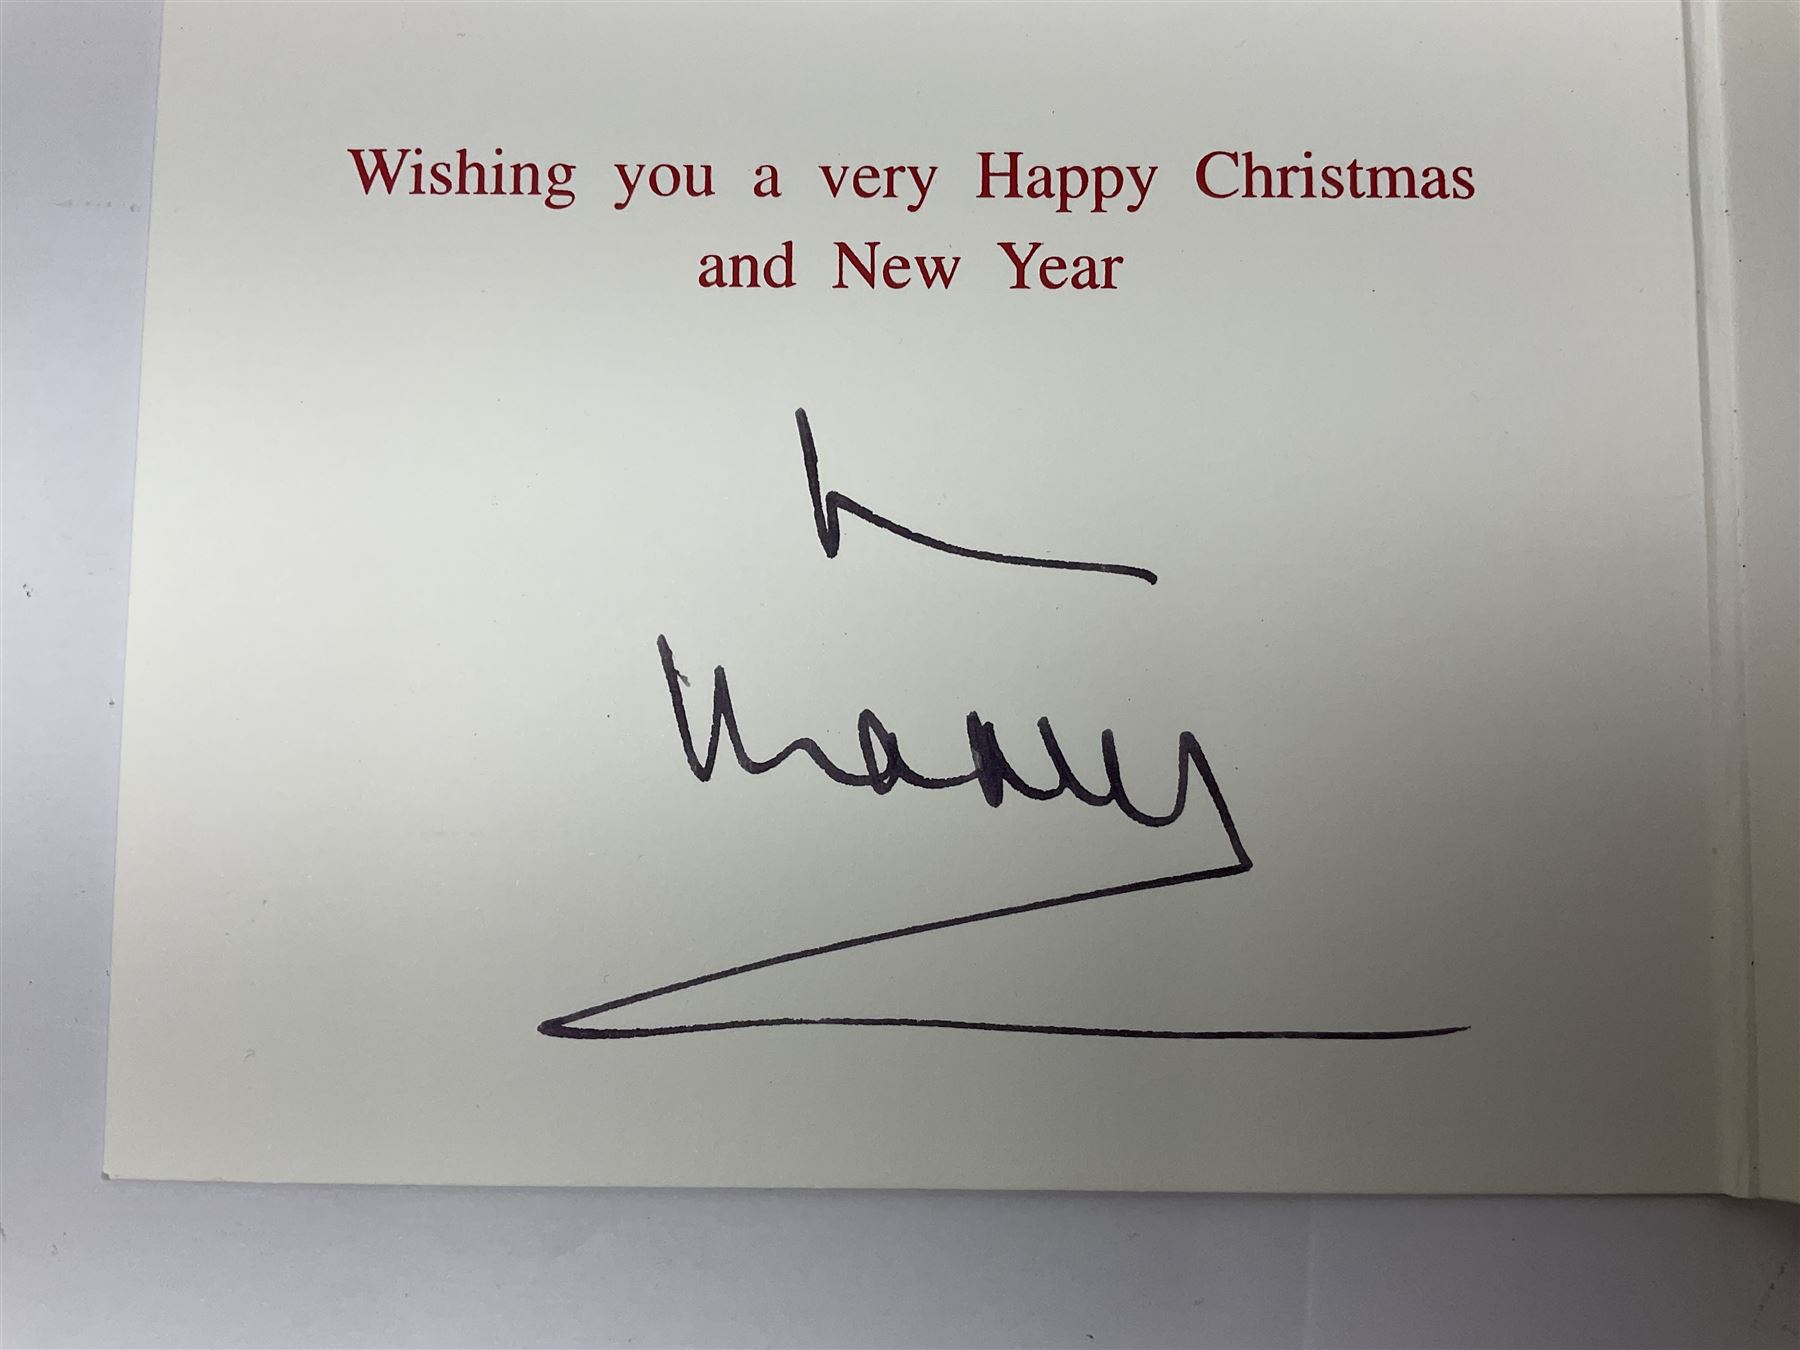 Wishing you a very Happy Christmas
and New Year